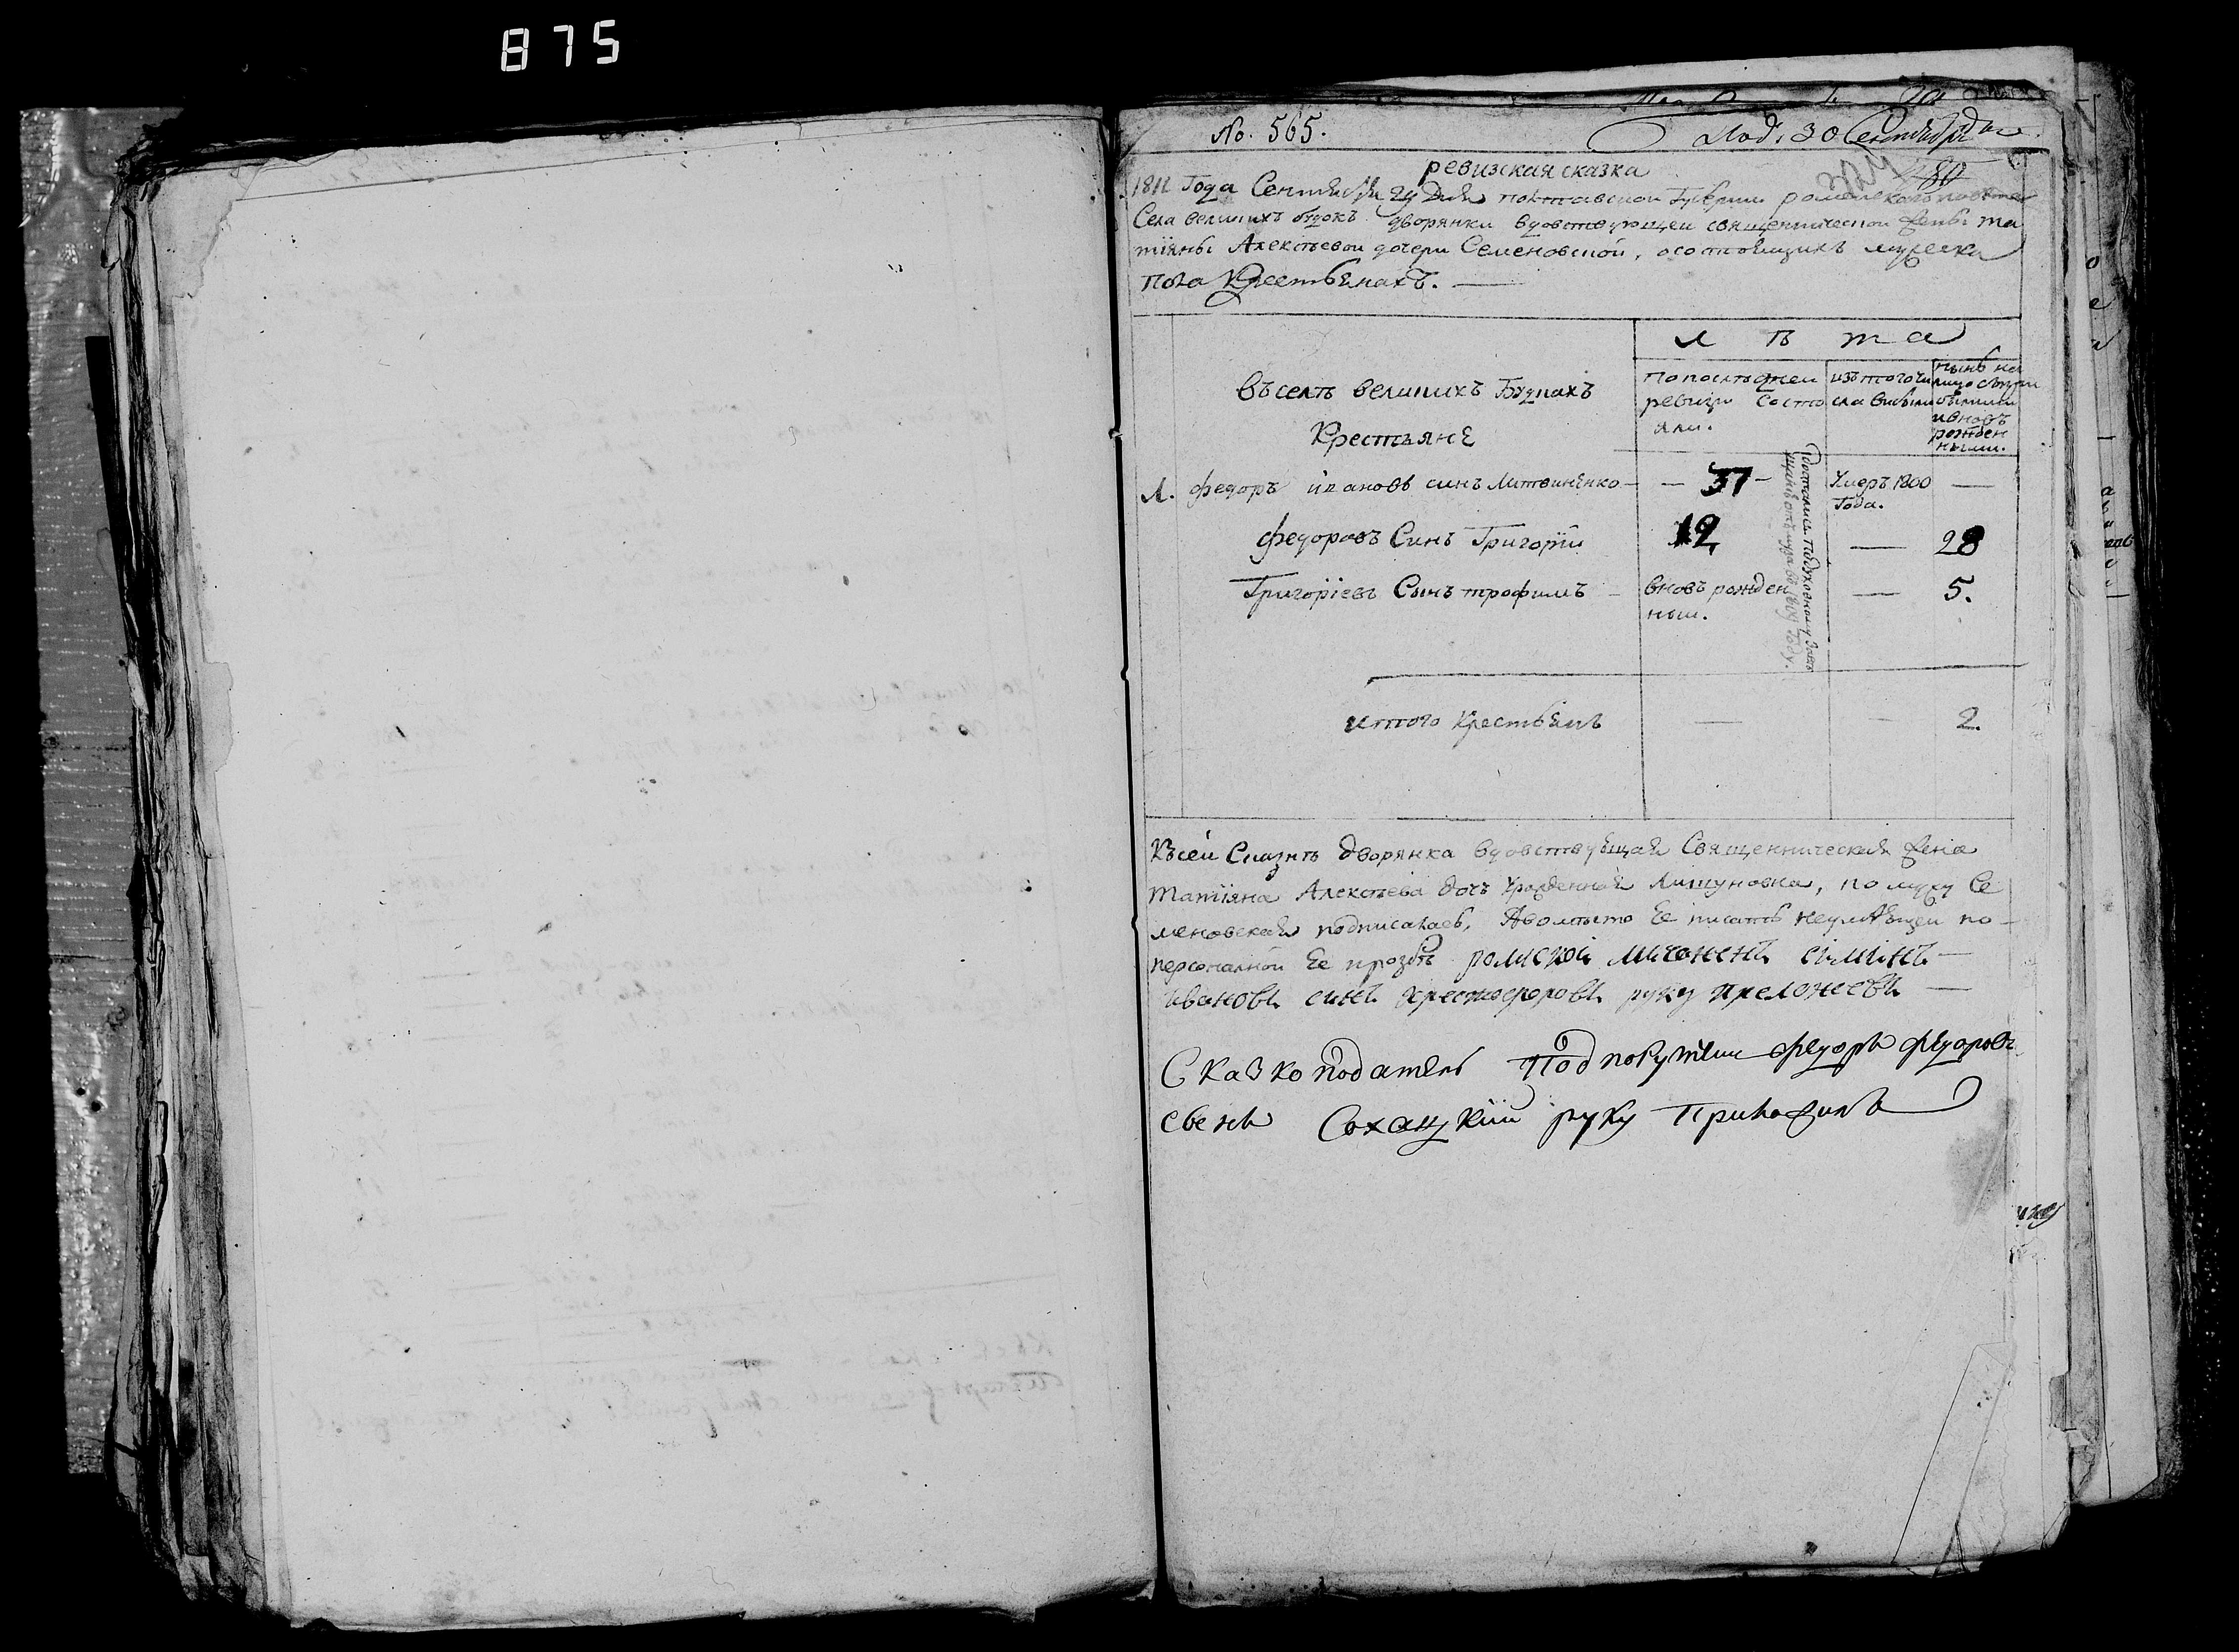 875
No. 565.
Под. 30 Сентября
ревизская сказка
1811 Года Сентября Дня полтавской Губернии роменского повета
Села великихъ будокъ дворянки вдовствующеи священнической жены та
тіяны Алексѣевой дочери Семеновской, осотоящихъ мужеска
пола Крестьянахъ.
Л ѣ т а
Въ селѣ великихъ Будкахъ
Крестьянѣ
попослѣдней
ревизіи состо
яли.
изъ того чи
сла выбыли
нынѣ на
лицо
ивновъ
рожден
ными.
1. федоръ ивановъ синъ Литвиненко
37
Умеръ 1800
Года.
федоровъ Синъ Григорій
12
28
Григоріевъ Сынъ трофимъ
вновъ рожден
ныи.
5.
итого крестьянъ
2.
Къ сей Сказкѣ дворянка вдовствующая Священническая жена
татіяна Алексѣева дочъ Урожденная, по мужу Се
меновская подписалась, Авомѣсто Ее писать неумѣющей по
персоналной Ее прозбѣ
ивановъ синъ христофоровъ руку преложевъ
Сказкоподатель федоръ федоровъ
Соханцкій руку Приложилъ